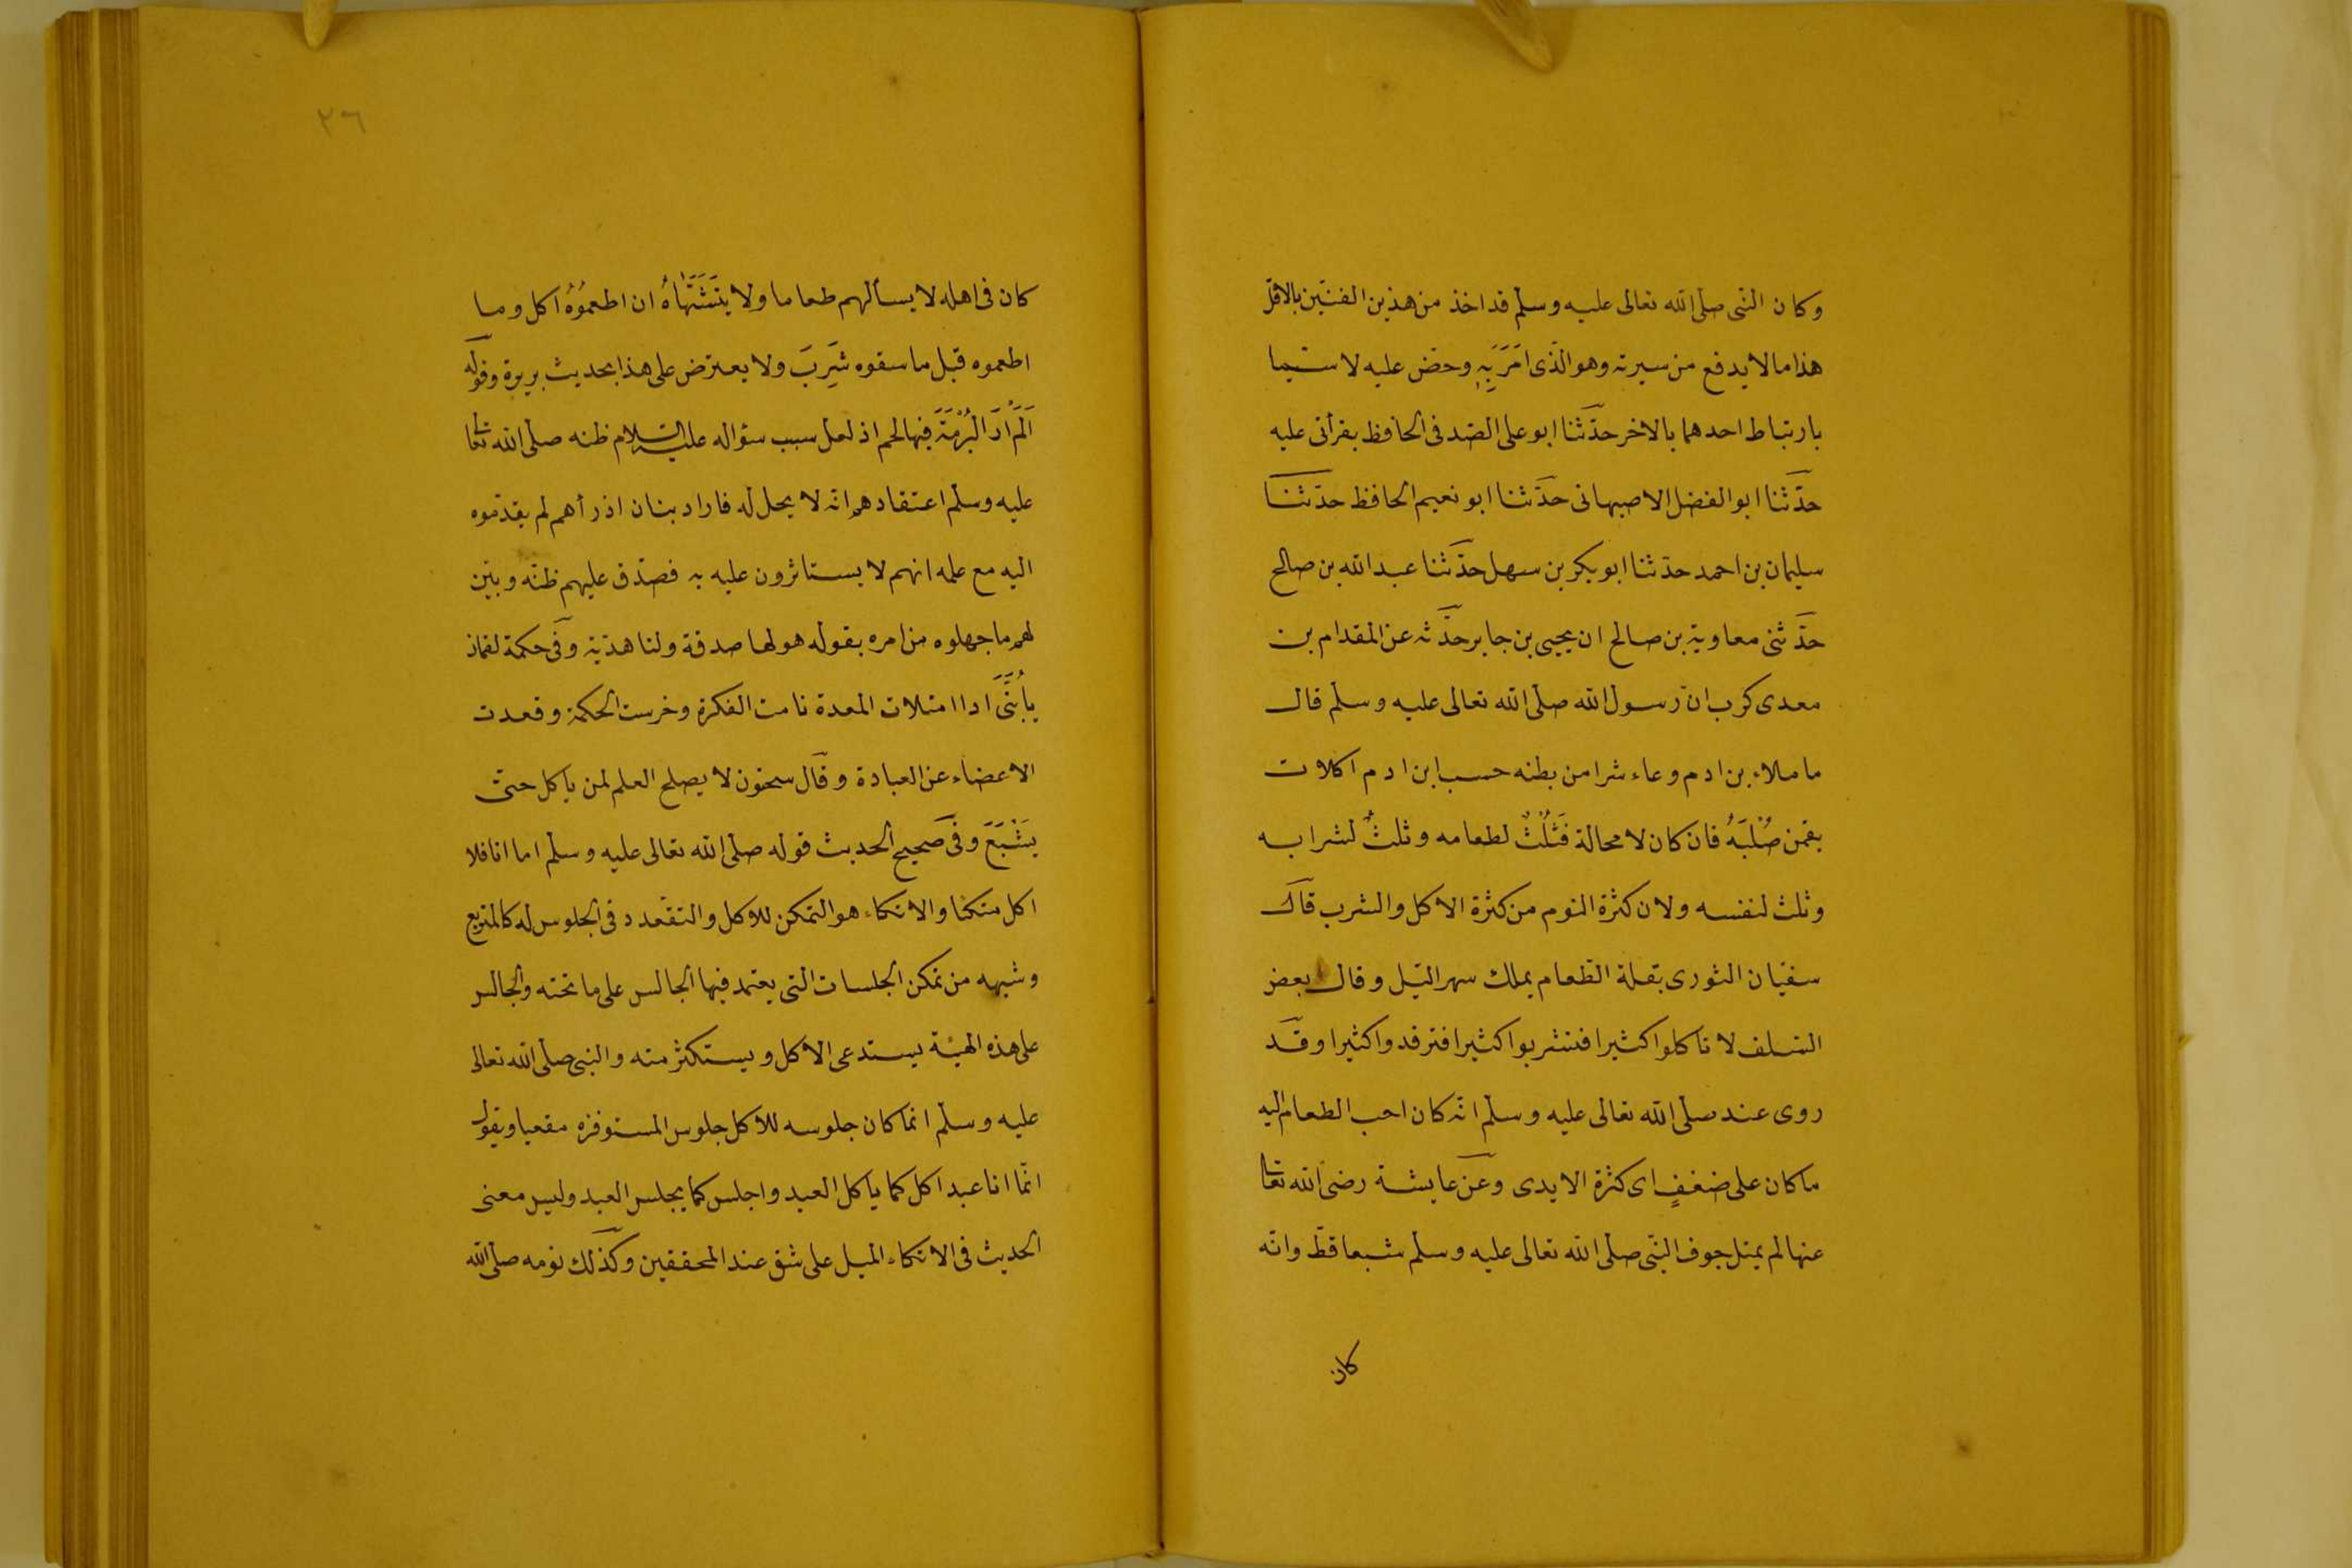 وكان النبى صلى الله تعالى عليه وسلم قد اخذ من هذين الفنين بالاقل
هذا مالا يدفع من سيرته وهو الذى امَرَ بِه وحض عليه لا سيما
بارتباط احدهما بالاخر حدثنا ابو على الصدفى الحافظ بقرأتى عليه
حدثنا ابو الفضل الاصبهانى حدثنا ابو نعيم الحافظ حدثنا
سليمان بن احمد حدثنا ابو بكر بن سهل حدثنا عبد الله بن صالح
حدثنى معاوية بن صالح ان يحيى بن جابر حدثه عن المقدام بن
معدى كرب ان رسول الله صلى الله تعالى عليه وسلم قال
ما ملاء بن ادم وعاء شرا من بطنه حسب ابن ادم اكلات
يقمن صُلْبَهُ فان كان لا محالة فَثُلُثٌ لطعامه وثلثٌ لشرابه
وثلث لنفسه ولان كثرة النوم من كثرة الاكل والشرب قال
سفيان الثورى بقلة الطعام يملك سهر الليل وقال بعض
السلف لا تاكلوا كثيرا فتشربوا كثيرا فترقدوا كثيرا وقد
روى عنه صلى الله تعالى عليه وسلم انه كان احب الطعام اليه
ما كان على ضففٍ اى كثرة الايدى وعن عايشة رضى الله تعا
عنها لم يمتل جوف النبى صلى الله تعالى عليه وسلم شبعا قط وانه
كان
٢٦
كان فى اهله لا يسألهم طعاما ولا يتشَهَّاهُ ان اطعموُهُ اكل وما
اطعموه قبل ما سقوه شَرِبَ ولا يعترض على هذا بحديث بريرة وقوله
اَلَمْ اَرَ الْبُرْمَةَ فيها لحم اذ لعل سبب سؤاله عليه السلام ظنه صلى الله تعا
عليه وسلم اعتقادهم انه لا يحل له فاراد بنان اذ رأهم لم يقدموه
اليه مع علمه انهم لا يستاثرون عليه به فصدق عليهم ظنه وبين
لهم ما جهلوه من امره بقوله هو لها صدقة ولنا هدية وفى حكمة لقمان
يابُنَىَّ اذا امتلات المعدة نامت الفكرة وخرست الحكمة وقعدت
الاعضاء عن العبادة وقال سحنون لا يصلح العلم لمن ياكل حتى
يَشْبَعَ وفى صحيح الحديث قوله صلى الله تعالى عليه وسلم اما انا فلا
اكل متكئا والاتكاء هو التمكن للاكل والتقعدد فى الجلوس له كالمتربع
وشبهه من تمكن الجلسات التى يعتمد فيها الجالس على ما تحته والجالس
على هذه الهيئة يستدعى الاكل ويستكثر منه والنبى صلى الله تعالى
عليه وسلم انما كان جلوسه للاكل جلوس المستوفزه مقعيا ويقول
انما انا عبد اكل كما ياكل العبد واجلس كما يجلس العبد وليس معنى
الحديث فى الاتكاء الميل على شق عند المحققين وكذلك نومه صلى الله